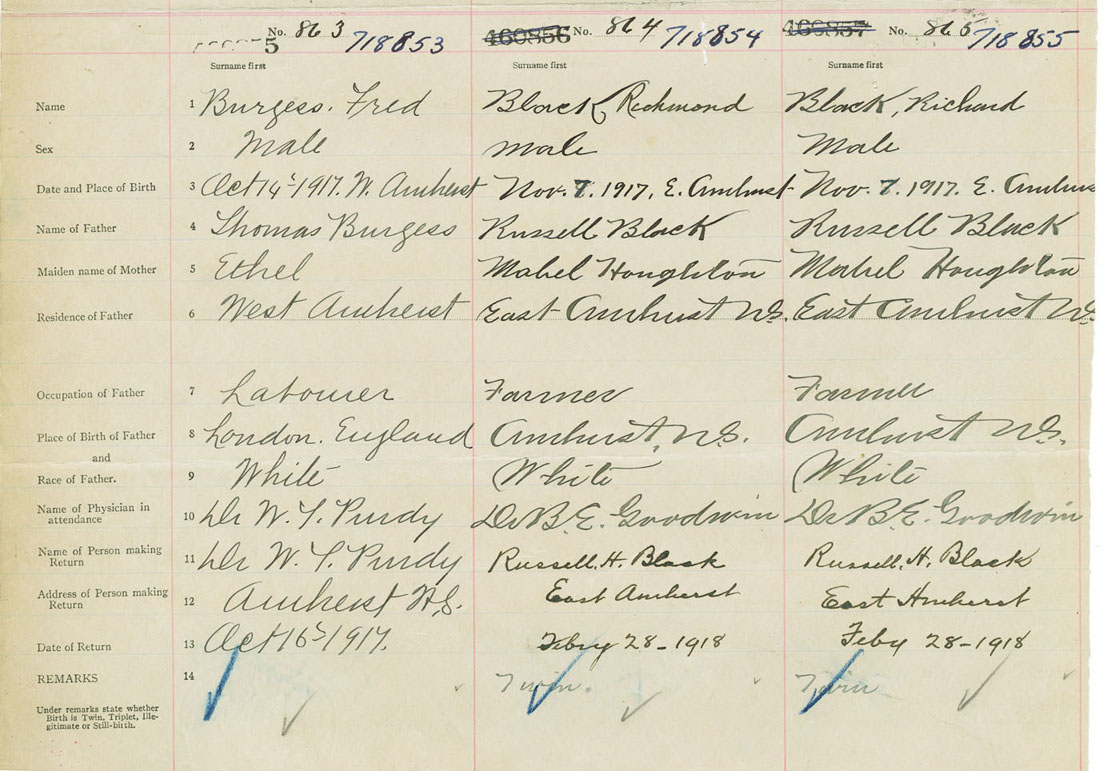 No. 863 718853 460856 No. 864 718854 460857 No. 865 718855
5
Surname first Surname first Surname first
Name 1 Burgess. Fred Black, Richmond Black, Richard
Sex 2 Male male Male
Date and Place of Birth 3 Oct 14th 1917. W. Amherst Nov. 7. 1917, E. Amherst Nov. 7. 1917. E. Amhers
Name of Father 4 Thomas Burgess Russell Black Russell Black
Maiden name of Mother 5 Ethel Mabel Houghton Mabel Houghton
Residence of Father 6 West Amherst East Amherst N.S. East Amherst N.S.
Occupation of Father 7 Labourer Farmer Farmer
Place of Birth of Father 8 London. England Amherst, N.S. Amherst N.S.
and
Race of Father. 9 White White White
Name of Physician in attendance 10 Dr W. T. Purdy Dr B.E. Goodwin Dr B.E. Goodwin
Name of Person making Return 11 Dr W. T. Purdy Russell. H. Black Russell. H. Black
Address of Person making Return 12 Amherst N.S. East Amherst East Amherst
Date of Return 13 Oct 16th 1917. Feby 28-1918 Feby 28-1918
REMARKS 14 Twin. Twin
Under remarks state whether
Birth is Twin, Triplet, Ille-
gitimate or Still-birth.